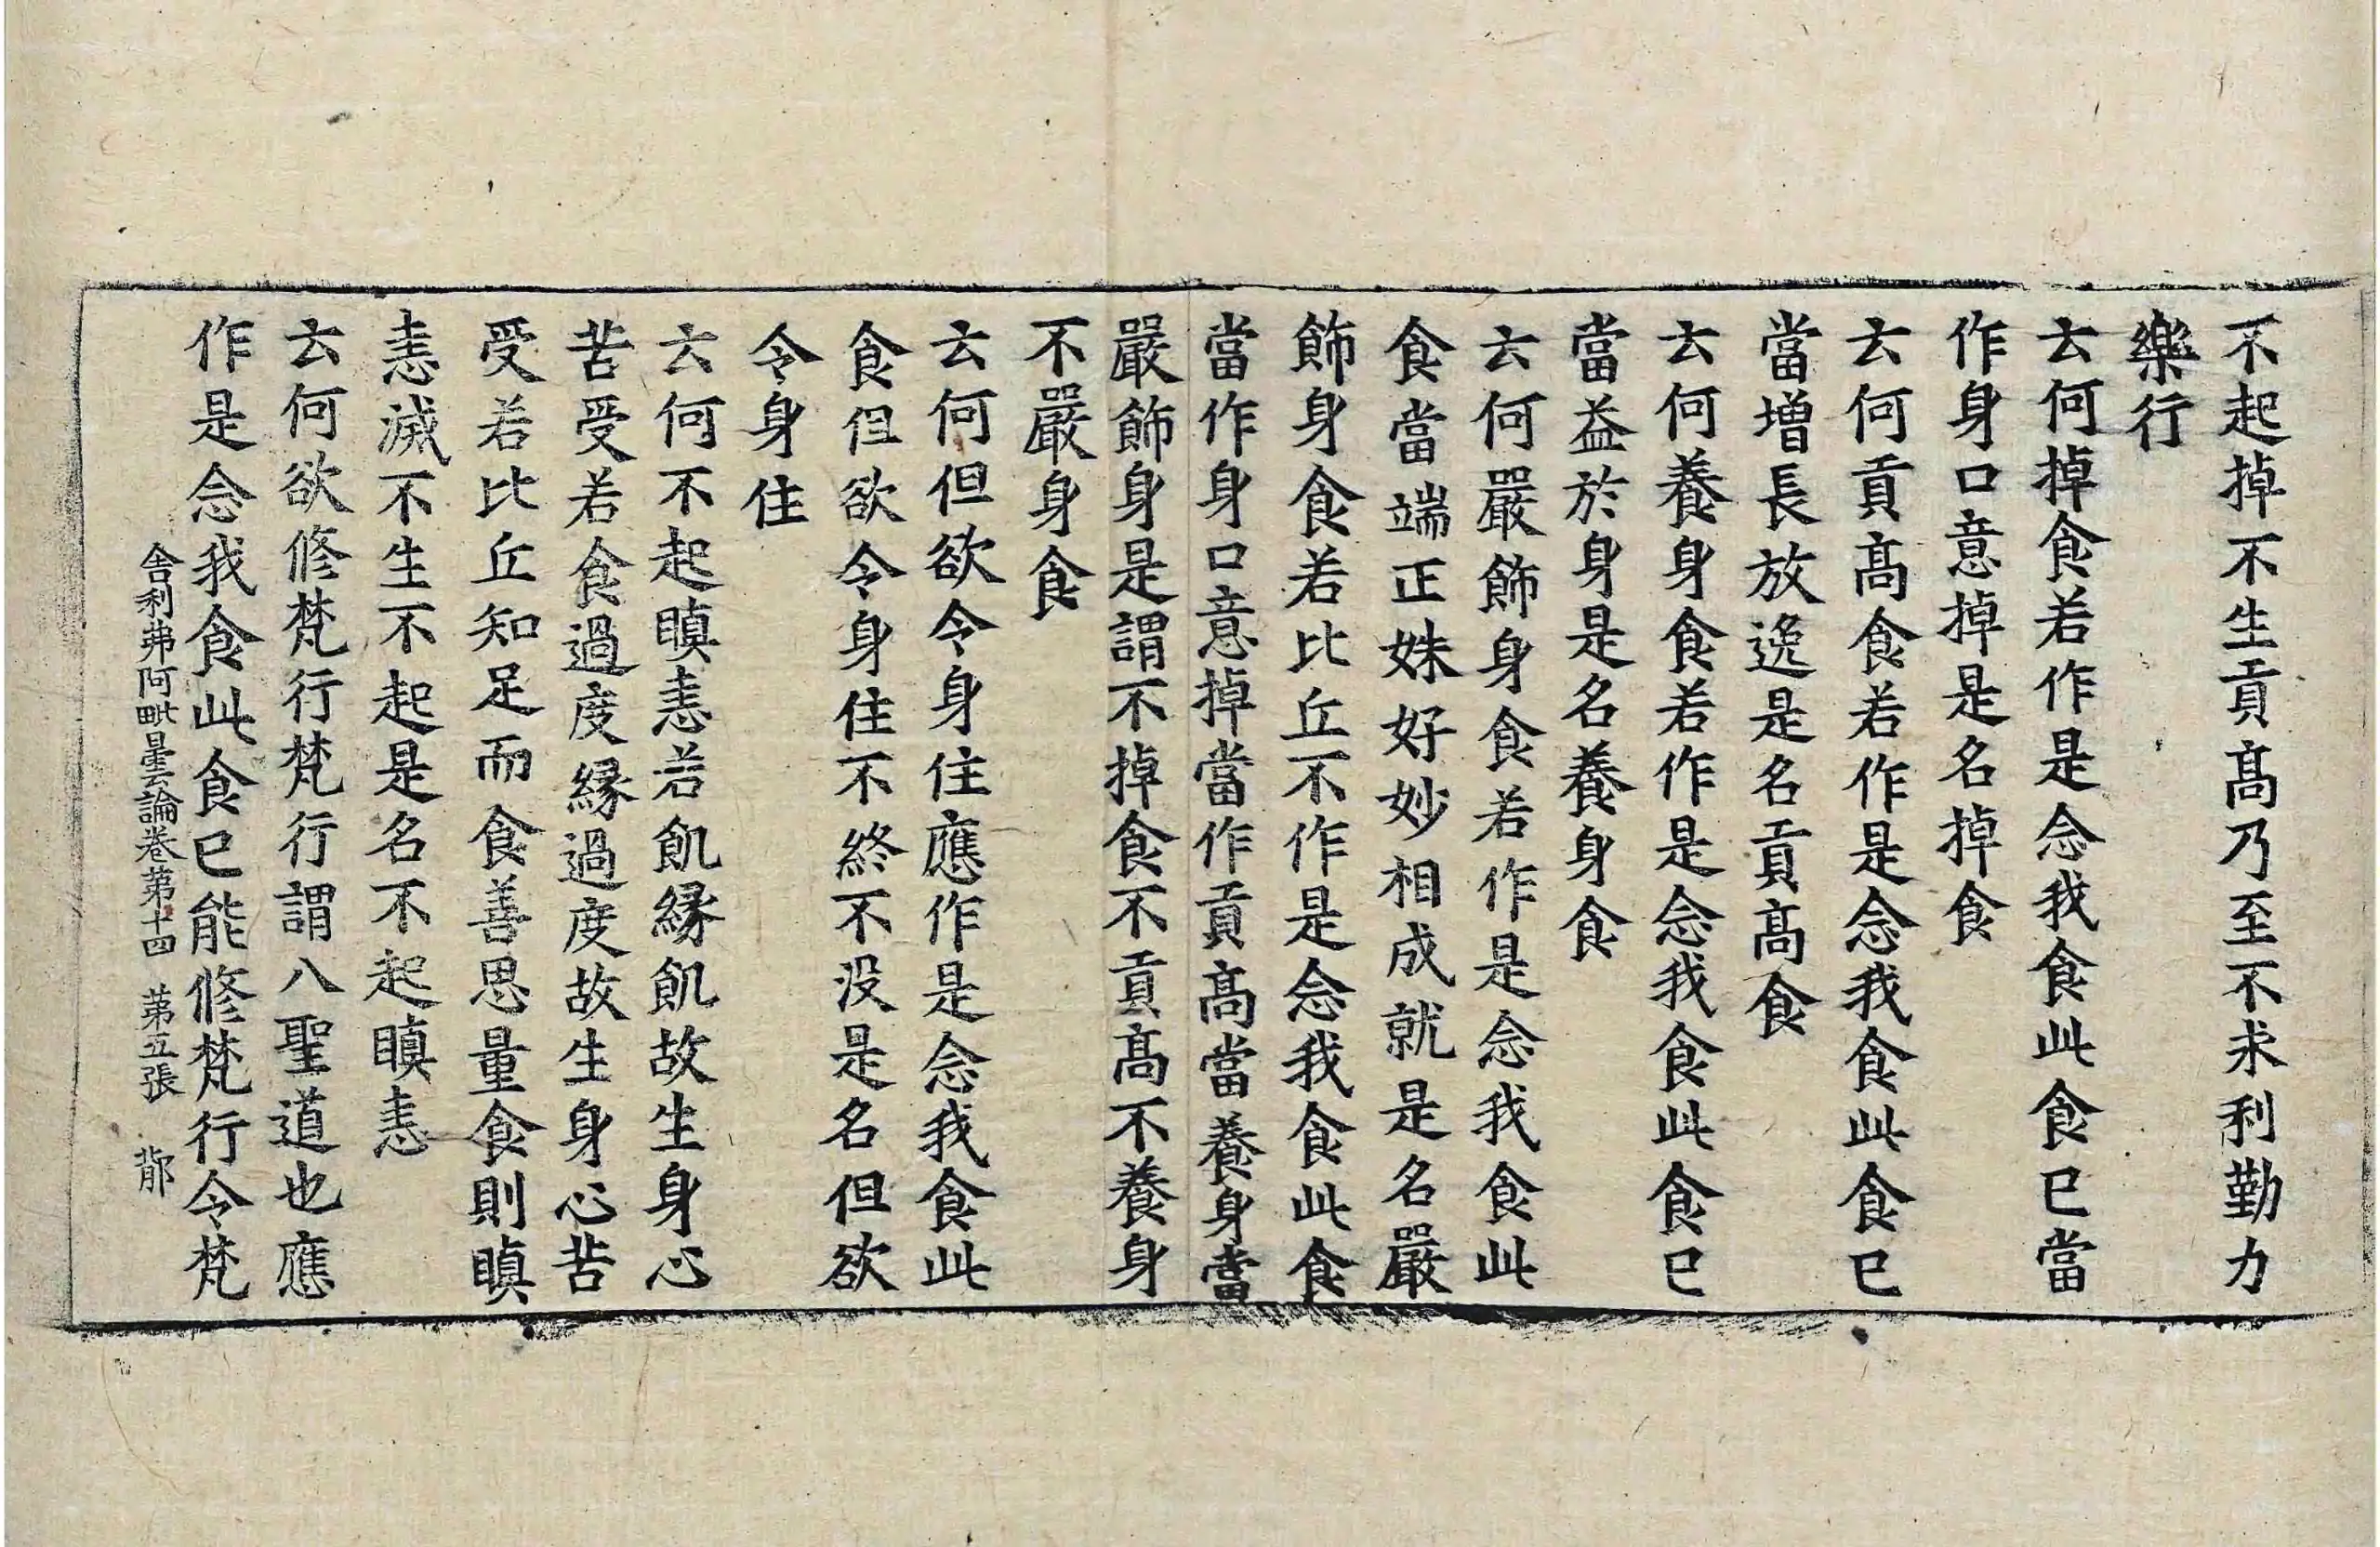 不起掉不生貢髙乃至不求利勤力
樂行
云何掉食若作是念我食此食已當
作身口意掉是名掉食
云何貢髙食若作是念我食此食已
當增長放逸是名貢髙食
云何養身食若作是念我食此食已
當益於身是名養身食
云何嚴飾身食若作是念我食此
食當端正姝好妙相成就是名嚴
飾身食若比丘不作是念我食此食
當作身口意掉當作貢髙當養身當
嚴飾身是謂不掉食不貢髙不養身
不嚴身食
云何但欲令身住應作是念我食此
食但欲令身住不終不没是名但欲
令身住
云何不起瞋恚若飢緣飢故生身心
苦受若食過度緣過度故生身心苦
受若比丘知足而食善思量食則瞋
恚滅不生不起是名不起瞋恚
云何欲修梵行梵行謂八聖道也應
作是念我食此食已能修梵行令梵
舍利弗阿毗曇論卷第十四 第五張